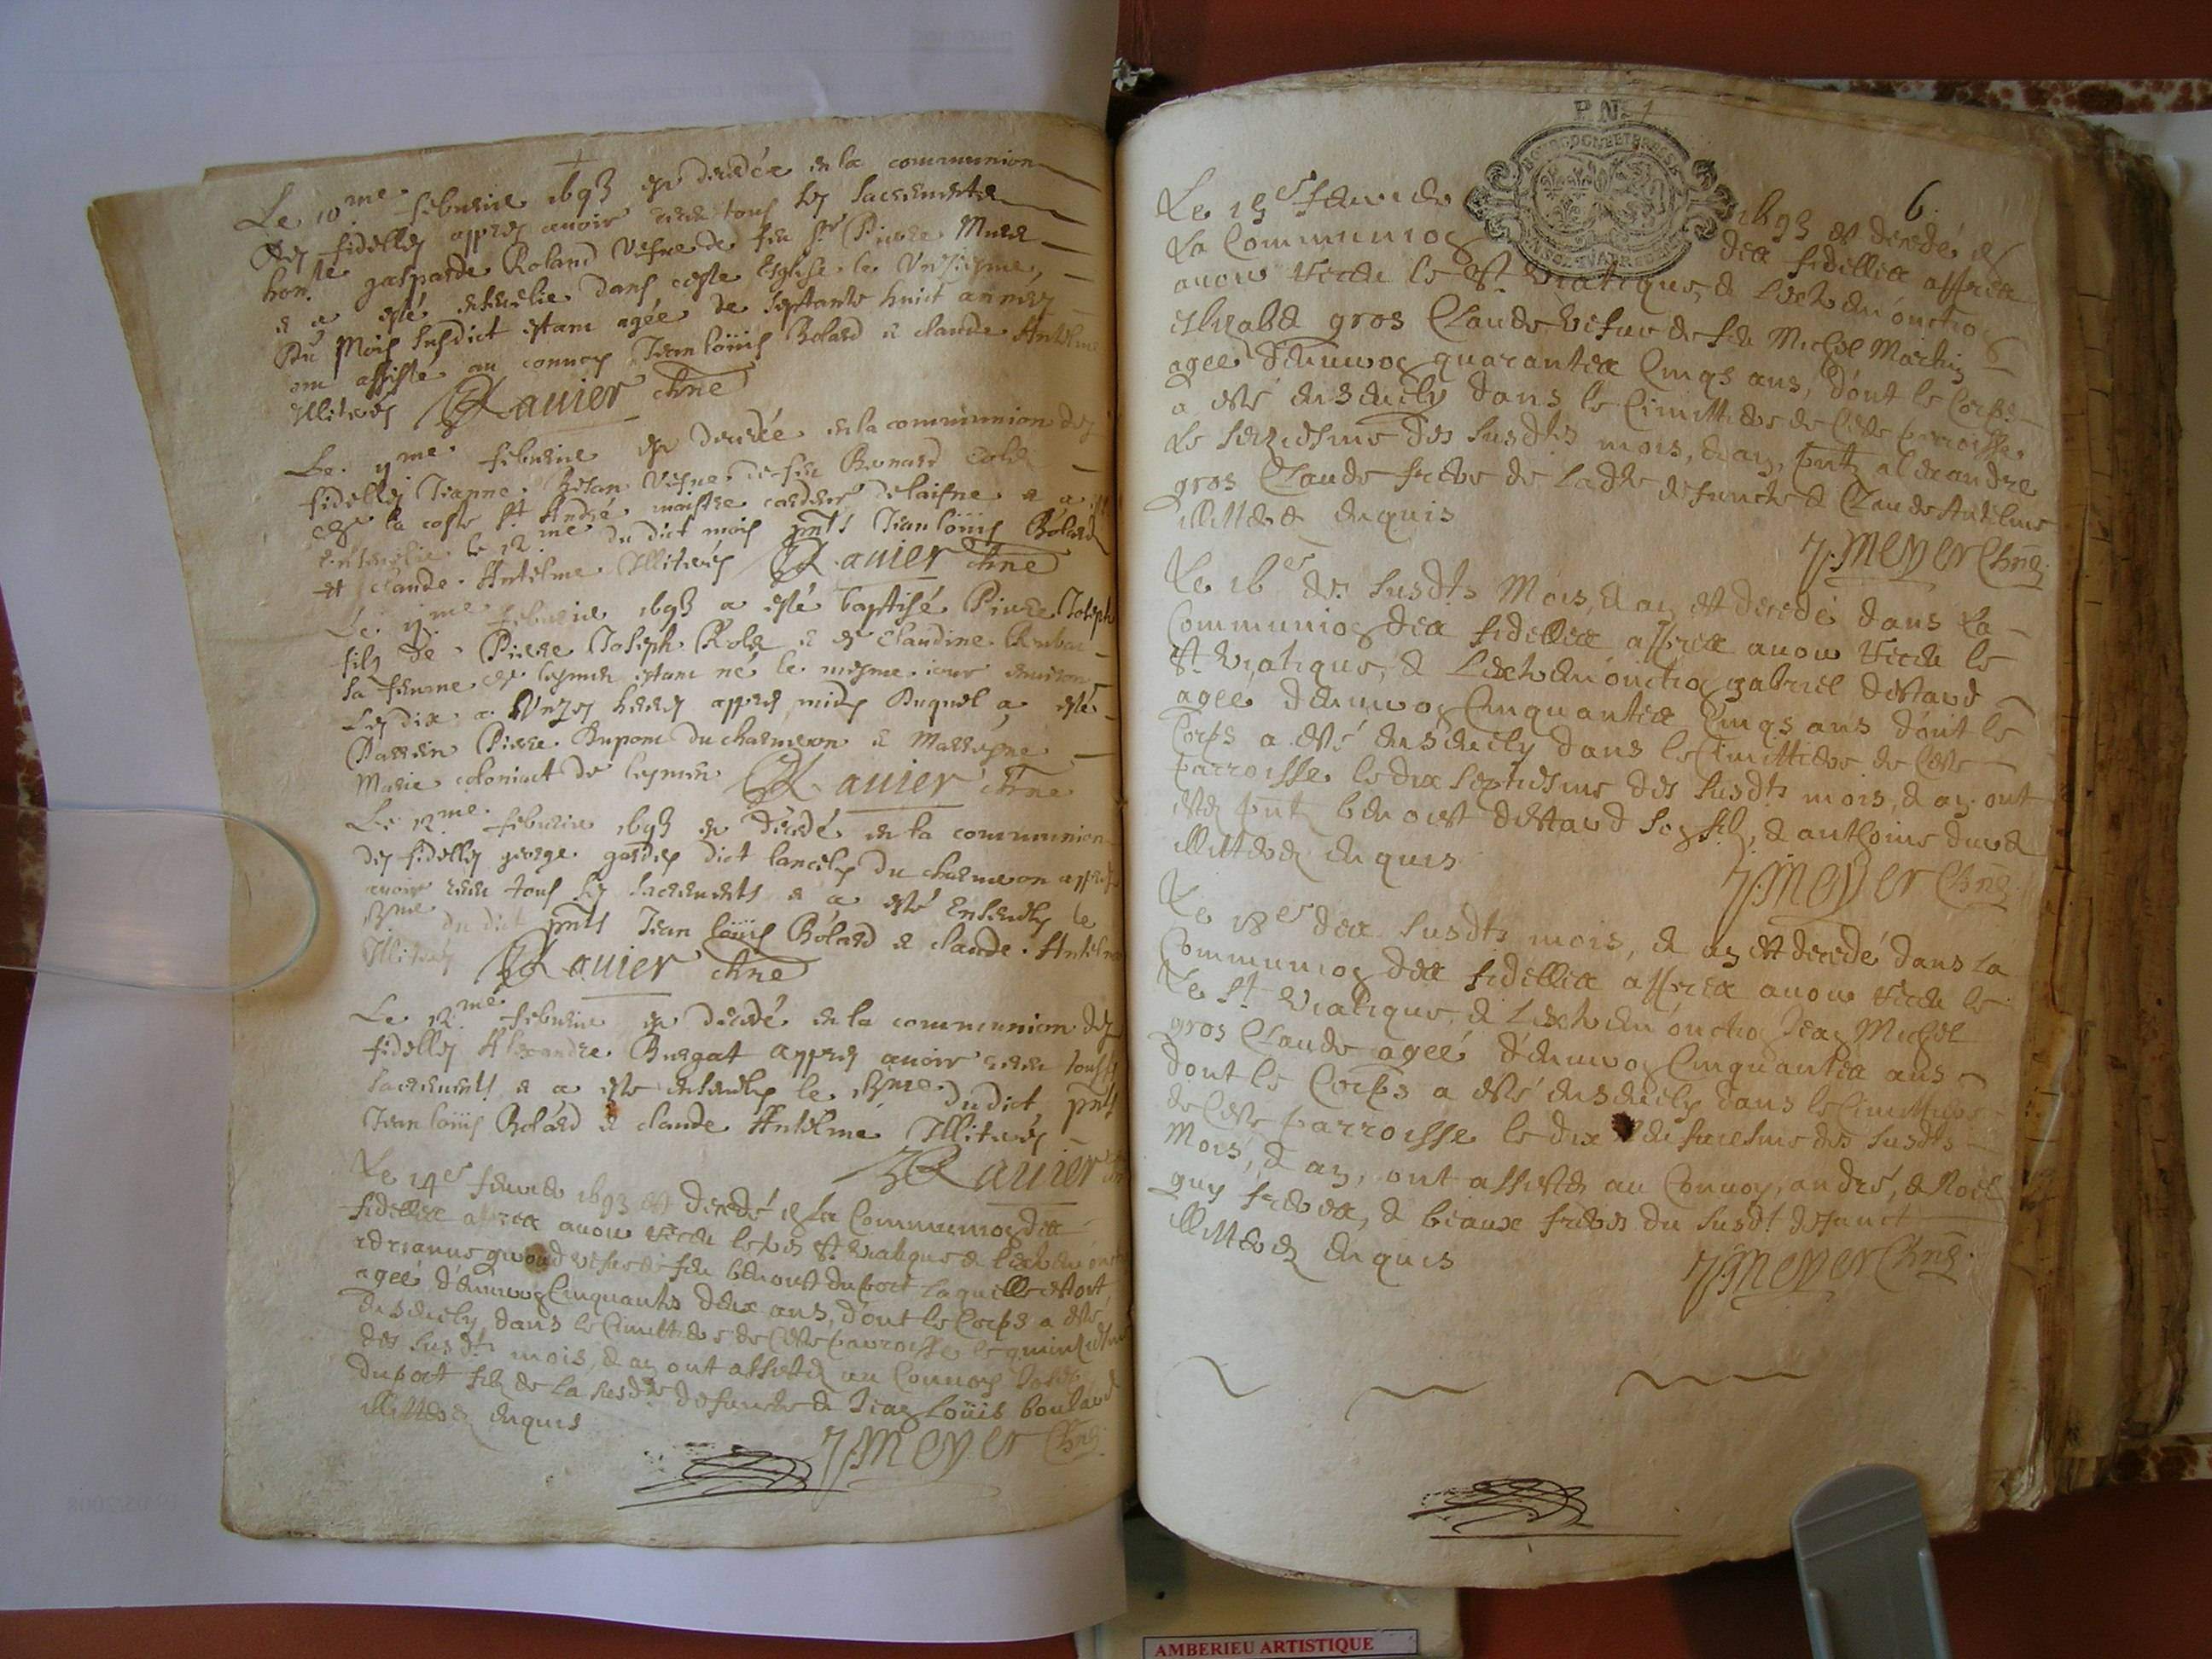 Le 10me febvrier 1693 est decedée en la communion
des fidelles appres avoir receu tous les sacrements
honste gasparde Roland vefve de feu Sr Pierre Muret
a esté ensevelie dans ceste Esglise le unziesme
du Mois susdict estant agée de septante huict années
ont assisté au convoy Jean loüis Bolard et claude Antelme
Illiterés Ravier chne
Le 11me febvrier est decedée en la communion des
fidelles Jeanne vefve de feu Bernard
la coste St André maistre cardeur de laisne et a
ensevelie le 12me du dict mois pnts Jean loüis Bolard
et claude Antelme Illiterés Ravier chne
Le 11me febvrier 1693 a esté baptisé Pierre Joseph
filz de Pierre Joseph et de Claudine
sa femme de leymen estant né le mesme jour environ
les dix a unzes heures appres midy Duquel a esté
Parrein Pierre Dupont du charmeron et Marreyne
Marie coloniact de leymen Ravier chne
Le 12me febvrier 1693 est décedé en la communion
des fidelles george dict lancely du charmeron appres
avoir receu tous les sacrements et a esté Ensevely le
13me du dict pnts Jean loüis Bolard et claude Antelme
Illiterés Ravier chne
Le 12me febvrier est décedé en la communion des
fidelles Alexandre Burgat appres avoir receu tous
sacrements et a este ensevely le 13me dudict pnts
Jean loüis Bolard et claude Antelme Illiterés
Ravier
Le 14e fevrier 1693 est decedé en la Communion des
fidelles apres avoir receu le St viatique et lextreme
vefve de feu benoist duport laquelle estoit
ageé d'environ Cinquante deux ans, dont le Corps a esté
ensevely dans le Cimettiere de Ceste parroisse le quinziesme
des susdts mois, et an ont assistés au Convoy
duport filz de la susdte defuncte et Jean Loüis boulard
illitterés enquis
J. Meyer Chne
P. N. 1
BOURGOGNE ET BRESSE
6
Le 15e fevrier 1693 est decedé en
la Communion des fidelles apres
avoir receu le St. viatique, et Lextreme onction
elisabet gros Claude vefve de feu Michel Martin
ageé d'environ quarante Cinqs ans, dont le Corps
a esté ensevely dans le Cimittiere de Ceste parroisse
Le seiziesme des susdts mois, et an, pnts alexandre
gros Claude frere de ladte defuncte et Claude Antelme
illitterés enquis
J. Meyer Chne
Le 16e des susdts Mois, et an est decedé dans La
Communion des fidelles apres avoir receu le
St. viatique, et Lextreme onction gabriel
ageé d'environ Cinquante Cinqs ans dont le
Corps a esté ensevely dans le Cimittiere de Ceste
parroisse le dix septiesme des susdts mois, et an. ont
estés pnts benoist son filz, et anthoine
illitterés enquis
J. Meyer Chne
Le 18e des susdts mois, et an est decedé dans la
Communion des fidelles apres avoir receu le
Le St viatique, et Lextreme onction Jean Michel
gros Claude ageé d'environ Cinquante ans
dont le Corps a esté ensevely dans le Cimittiere
de Ceste parroisse le dix neufviesme des susdts
Mois, et an, ont assistés au Convoy, andré, et Noel
guy freres, et beaux freres du susdt defunct
illitterés enquis
J. Meyer Chne
AMBERIEU ARTISTIQUE